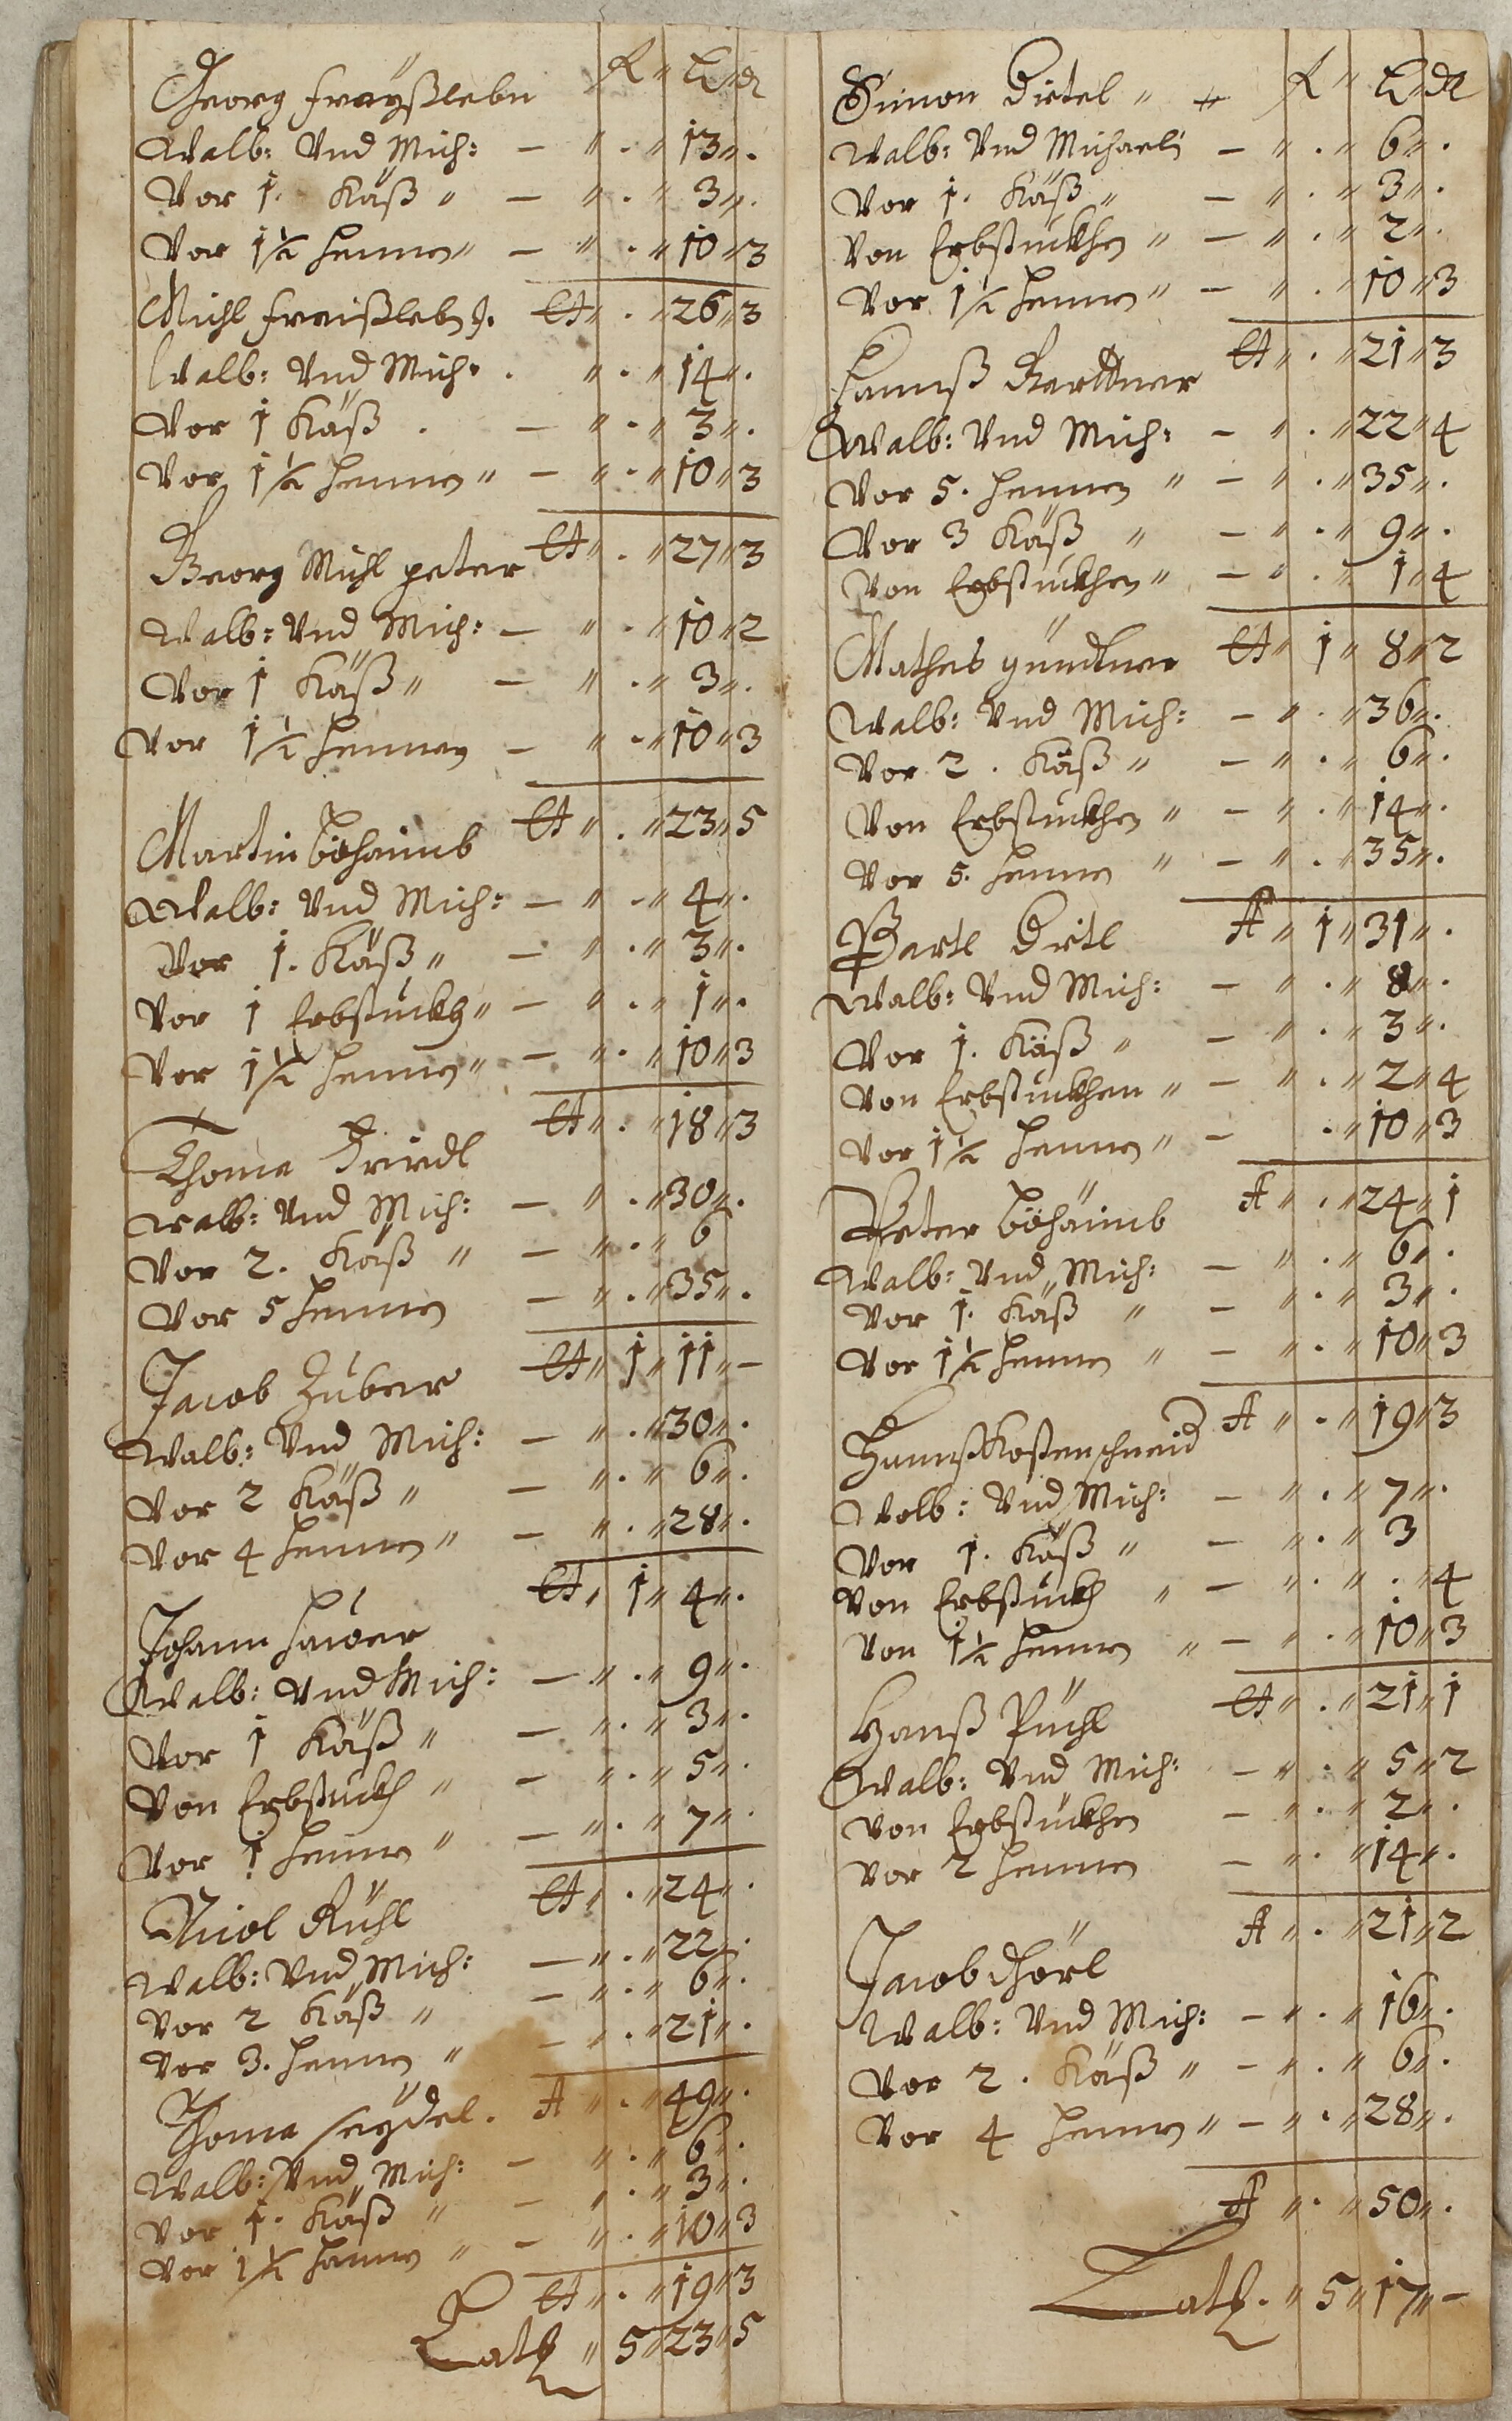 Georg Frayßlebn f „ kr „ dl
Walb: Vnd Mich: — „ . „ 13 „ .
Vor 1. Käß „ — „ . „ 3 „ .
Vor 1½ hennen „ — „ . „ 10 „ 3
Michl Fraißlebn J. „ . „ 26 „ 3
Walb: Vnd Mich: . „ . „ 14 „ .
Vor 1 Käß . — „ . „ 3 „ .
Vor 1½ hennen „ — „ . „ 10 „ 3
Georg Michl peter „ . „ 27 „ 3
Walb: Vnd Mich: — „ . „ 10 „ 2
Vor 1 Käß „ — „ . „ 3 „ .
Vor 1½ hennen — „ . „ 10 „ 3
Martin Böhaimb „ . „ 23 „ 5
Walb: Vnd Mich: — „ . „ 4 „ .
Vor 1. Käß „ — „ . „ 3 „ .
Vor 1 Erbstuckh „ — „ . „ 1 „ .
Vor 1½ hennen „ — „ . „ 10 „ 3
Thoma „ . „ 18 „ 3
Walb: Vnd Mich: — „ . „ 30 „ .
Vor 2. Käß „ — „ . „ 6
Vor 5 hennen — „ . „ 35 „ .
Jacob Zuber „ 1 „ 11 „ —
Walb: Vnd Mich: — „ . „ 30 „ .
Vor 2 Käß „ — „ . „ 6 „ .
Vor 4 hennen „ — „ . „ 28 „ .
Johann „ 1 „ 4 „ .
Walb: Vnd Mich: — „ . „ 9 „ .
Vor 1 Käß „ — „ . „ 3 „ .
Von Erbstuckh „ — „ . „ 5 „ .
Vor 1 hennen „ — „ . „ 7 „ .
Nicol Rühl „ . „ 24 „ .
Walb: Vnd Mich: — „ . „ 22 „ .
Vor 2 Käß „ — „ . „ 6 „ .
Vor 3. hennen „ — „ . „ 21 „ .
Thoma seydel. „ . „ 49 „ .
Walb: Vnd Mich: — „ . „ 6 „ .
Vor 1. Käß „ — „ . „ 3 „ .
Vor 1½ hennen „ — „ . „ 10 „ 3
„ . „ 19 „ 3
Latß „ 5 „ 23 „ 5
Simon Dietel „ f „ kr „ dl
Walb: Vnd Michaeli — „ . „ 6 „ .
Vor 1. Käß „ — „ . „ 3 „ .
Von Erbstuckhen „ — „ . „ 2 „ .
Vor 1½ hennen „ — „ . „ 10 „ 3
Hannß „ . „ 21 „ 3
Walb: Vnd Mich: — „ . „ 22 „ 4
Vor 5. hennen „ — „ . „ 35 „ .
Vor 3 Käß „ — „ . „ 9 „ .
Von Erbstuckhen „ — „ . „ 1 „ 4
Mathes gündtner „ 1 „ 8 „ 2
Walb: Vnd Mich: — „ . „ 36 „ .
Vor 2. Käß „ — „ . „ 6 „ .
Von Erbstuckhen „ — „ . „ 14 „ .
Vor 5. hennen „ — „ . „ 35 „ .
Bartl Dietl „ 1 „ 31 „ .
Walb: Vnd Mich: — „ . „ 8 „ .
Vor 1. Käß „ — „ . „ 3 „ .
Von Erbstuckhen „ — „ . „ 2 „ 4
Vor 1½ hennen „ — . „ 10 „ 3
Peter Böhaimb „ . „ 24 „ 1
Walb: Vnd Mich: — „ . „ 6 „ .
Vor 1. Käß „ — „ . „ 3 „ .
Vor 1½ hennen „ — „ . „ 10 „ 3
Hannß Kostenschneid „ . „ 19 „ 3
Walb: Vnd Mich: — „ . „ 7 „ .
Vor 1. Käß „ — „ . „ 3
Von Erbstuckh „ — „ . „ . „ 4
Von 1½ hennen „ — „ . „ 10 „ 3
Hanß Püchl „ . „ 21 „ 1
Walb: Vnd Mich: — „ . „ 5 „ 2
Von Erbstuckhen — „ . „ 2 „ .
Vor 2 hennen — „ . „ 14 „ .
Jacob „ . „ 21 „ 2
Walb: Vnd Mich: — „ . „ 16 „ .
Vor 2. Käß „ — „ . „ 6 „ .
Vor 4 hennen „ — „ . „ 28 „ .
„ . „ 50 „ .
Latß. „ 5 „ 17 „ —